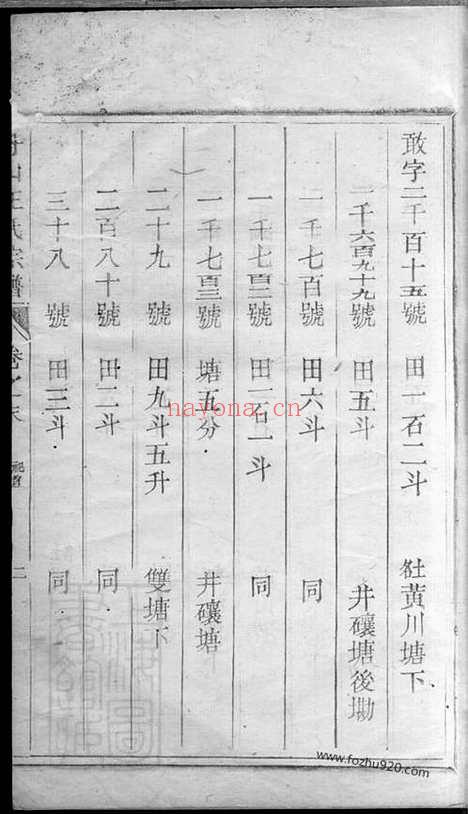 敢字二千百十五號 田一石二斗 𡉏黃川塘下
一千六百九十九號 田五斗 井礳塘後塝
一千七百號 田六斗 同
一千七百二號 田一石一斗 同
一千七百三號 塘五分 井礳塘
二十九號 田九斗五升 雙塘下
二百八十號 田二斗 同
三十八號 田三斗 同
山王氏宗譜 卷之末 二
nayona.cn
www.fozhu920.com